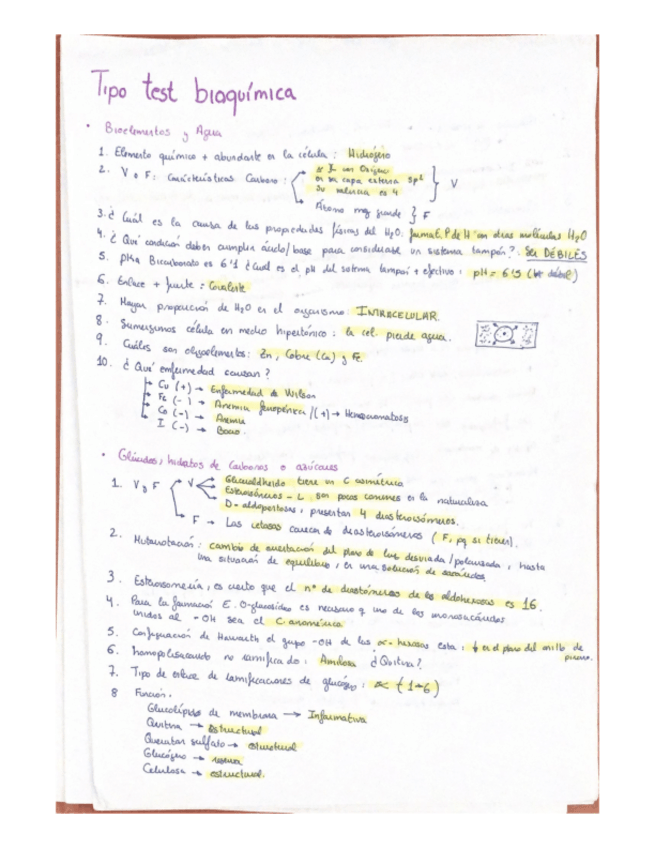 Tipo test bioquímica
• Bioelementos y Agua
1. Elemento químico + abundante en la célula: Hidrógeno
2. V o F: Características Carbono:
en su capa externa sp²
Su valencia es 4
V
Átomo muy grande } F
3. ¿Cuál es la causa de las propiedades físicas del H₂O: forma E.P de H con otras moléculas H₂O
4. ¿Qué condición deben cumplir ácido/base para considerarse un sistema tampón?: Ser DÉBILES
5. pKa Bicarbonato es 6'1 ¿Cuál es el pH del sistema tampón + efectivo: pH = 6'5
6. Enlace + fuerte = Covalente
7. Mayor proporción de H₂O en el organismo: INTRACELULAR.
8. Sumergimos célula en medio hipertónico: la cel. pierde agua.
9. Cuáles son oligoelementos: Zn, Cobre (Cu) y Fe
10. ¿Qué enfermedad causan?
Cu (+) → Enfermedad de Wilson
Fe (-) → Anemia ferropénica /(+) → Hemocromatosis
Co (-) → Anemia
I (-) → Bocio.
• Glúcidos, hidratos de Carbonos o azúcares
1. V y F
V
Gliceraldheido tiene un C asimétrico
Estereoisómeros - L son pocos comunes en la naturaleza
D- aldopentosas, presentan 4 diastereoisómeros.
F → Las cetosas carecen de diastereoisómeros (F, pq si tienen).
2. Mutarrotación: cambio de orientación del plano de luz desviada/polarizada, hasta
una situación de equilibrio, en una solución de sacáridos
3. Estereoisomería, es cierto que el nº de diastómeros de las aldohexosas es 16.
4. Para la formación E. O-glucosídico es necesario q uno de los monosacáridos
unidos al -OH sea el C anomérico.
5. Configuración de Haworth el grupo -OH de las α- hexosas esta: ↓ en el plano del anillo de
pirano.
6. homopolisacárido no ramificado: Amilosa ¿Quitina?
7. Tipo de enlace de ramificaciones de glucógeno: α (1→6)
8 Función.
Glucolípidos de membrana → Informativa
Quitina → Estructural
Queratan sulfato → estructural
Glucógeno → reserva
Celulosa → estructural.